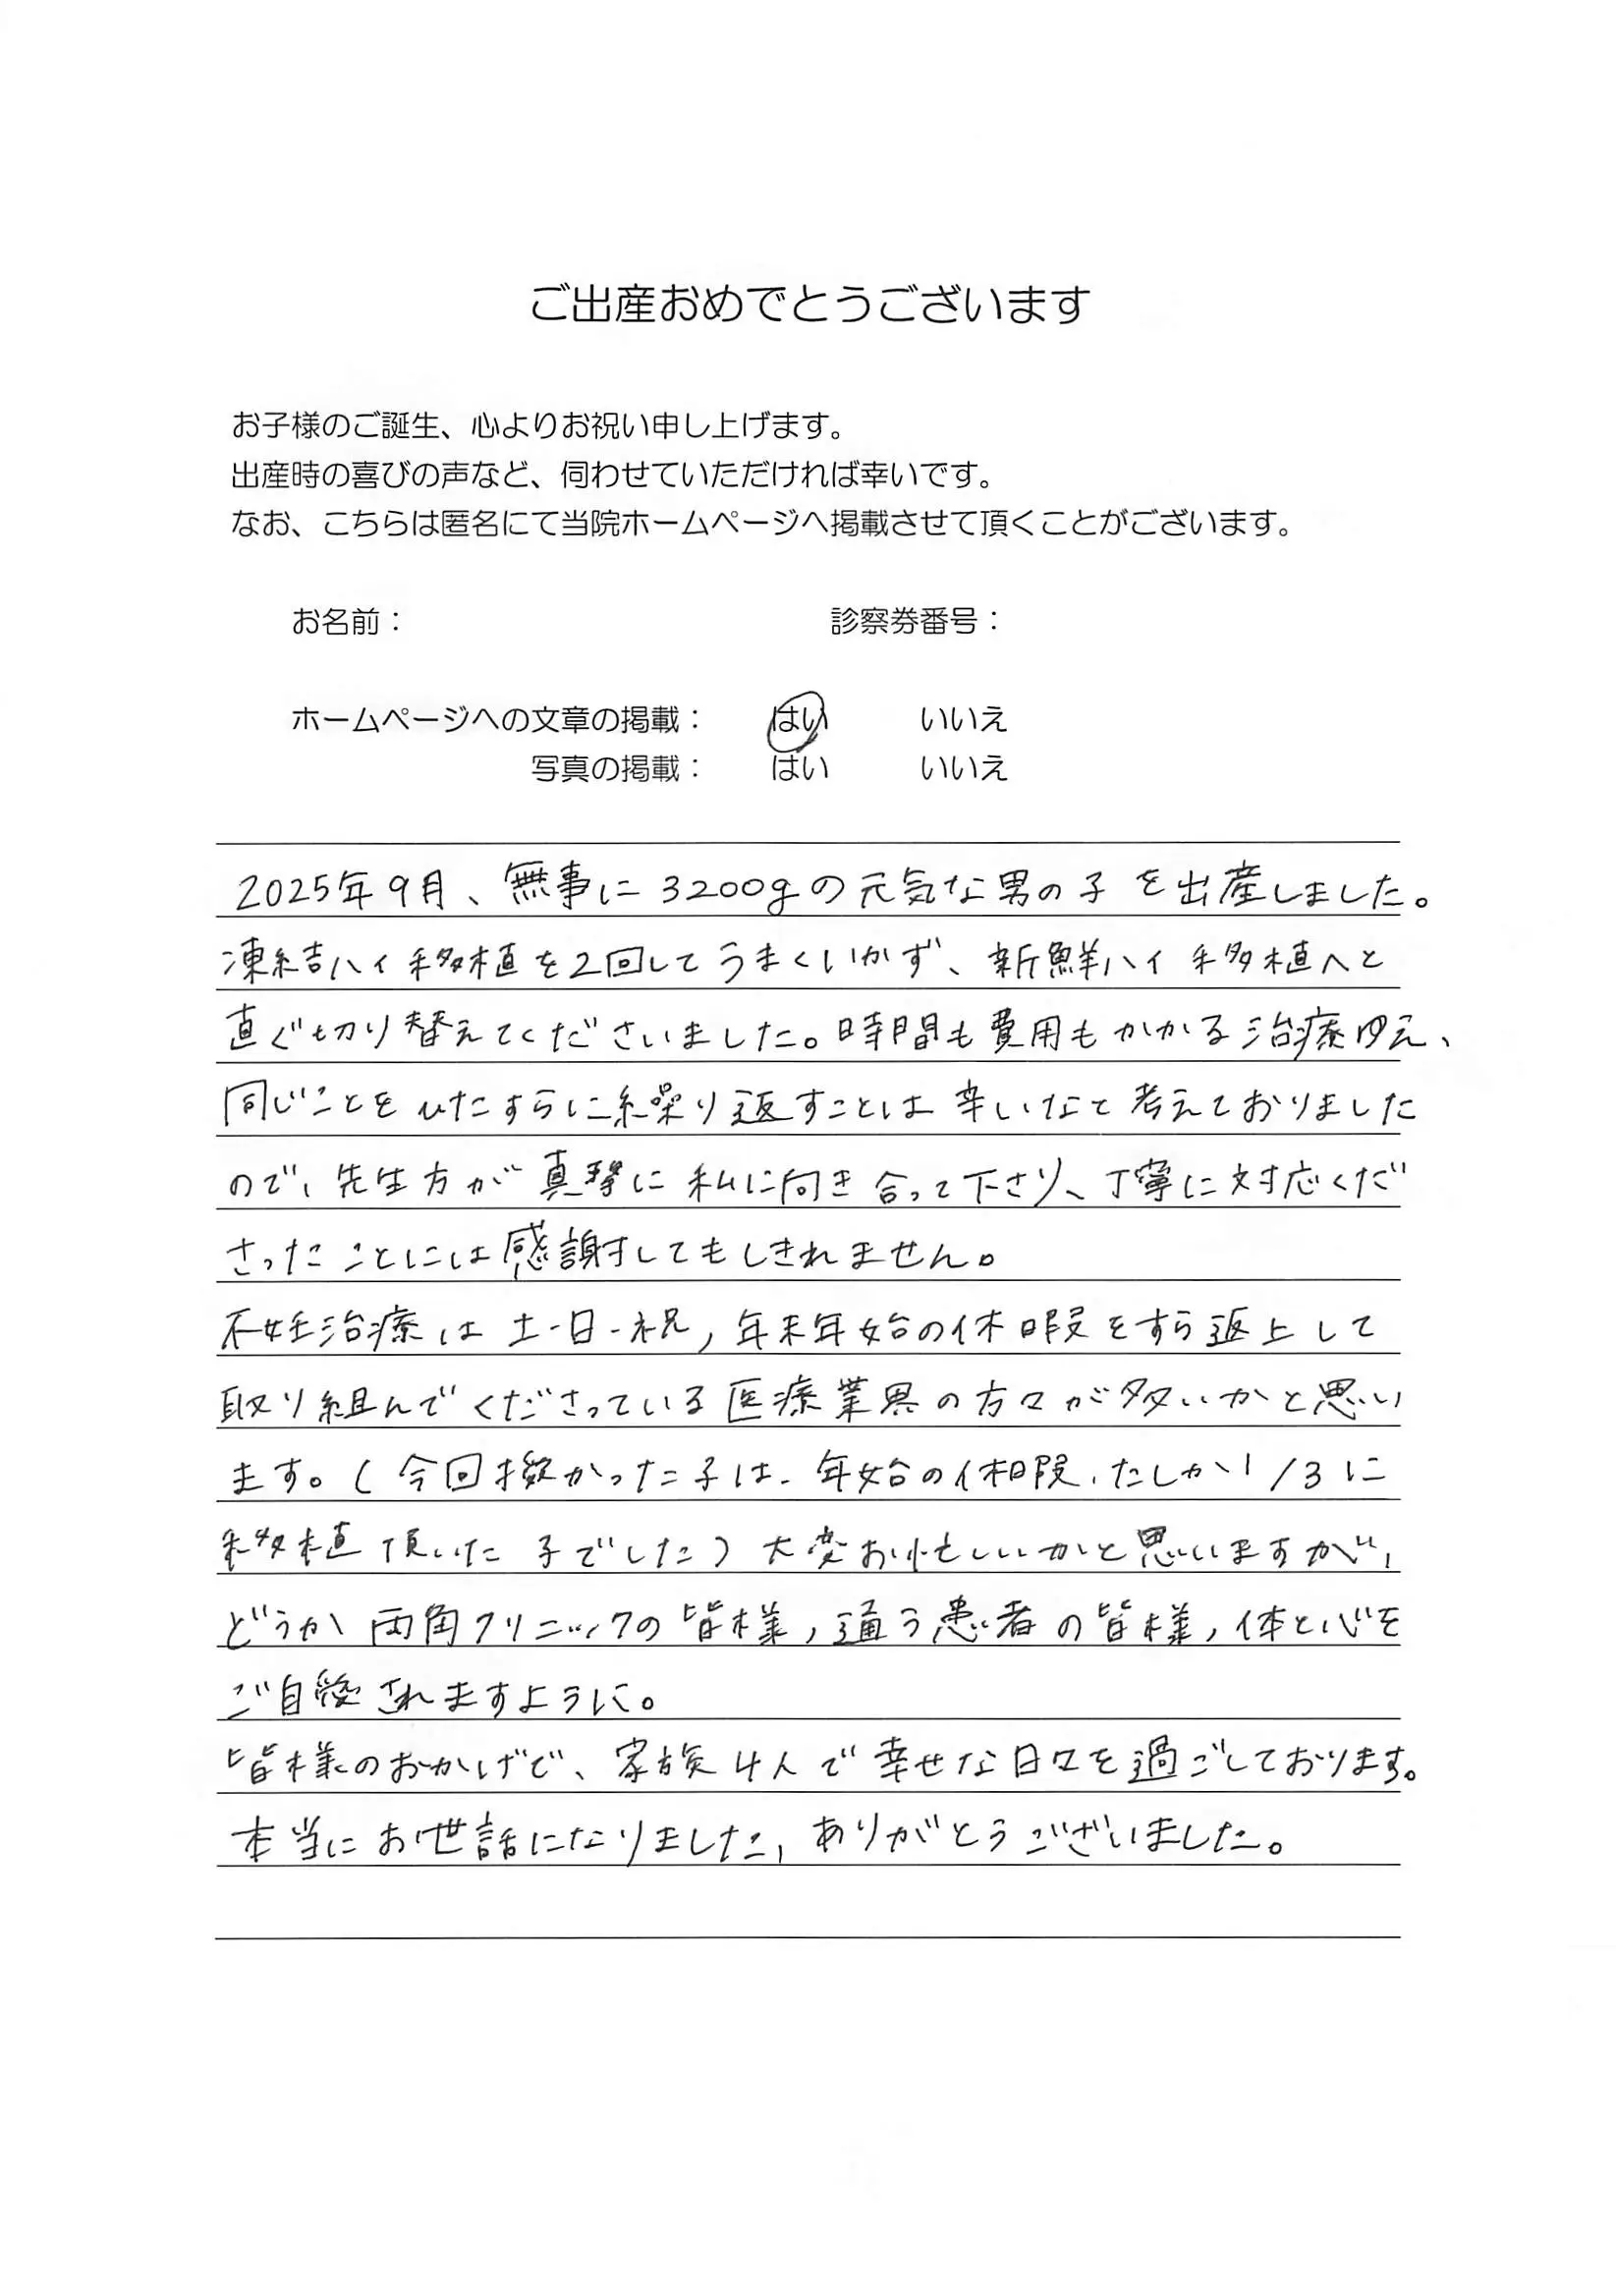 ご出産おめでとうございます
お子様のご誕生、心よりお祝い申し上げます。
出産時の喜びの声など、伺わせていただければ幸いです。
なお、こちらは匿名にて当院ホームページへ掲載させて頂くことがございます。
お名前： 診察券番号：
ホームページへの文章の掲載： はい いいえ
写真の掲載： はい いいえ
2025年9月、無事に3200gの元気な男の子を出産しました。
凍結ハイ移植を2回してうまくいかず、新鮮ハイ移植へと
直ぐ切り替えてくださいました。時間も費用もかかる治療ゆえ、
同じことをひたすらに繰り返すことは辛いなと考えておりました
ので、先生方が真摯に私に向き合って下さり、丁寧に対応くだ
さったことには感謝してもしきれません。
不妊治療は土・日・祝，年末年始の休暇をすら返上して
取り組んでくださっている医療業界の方々が多いかと思い
ます。(今回授かった子は、年始の休暇、たしか1/3に
移植頂いた子でした)大変お忙しいかと思いますが、
どうか両角クリニックの皆様，通う患者の皆様，体と心を
ご自愛されますように。
皆様のおかげで、家族4人で幸せな日々を過ごしております。
本当にお世話になりました、ありがとうございました。